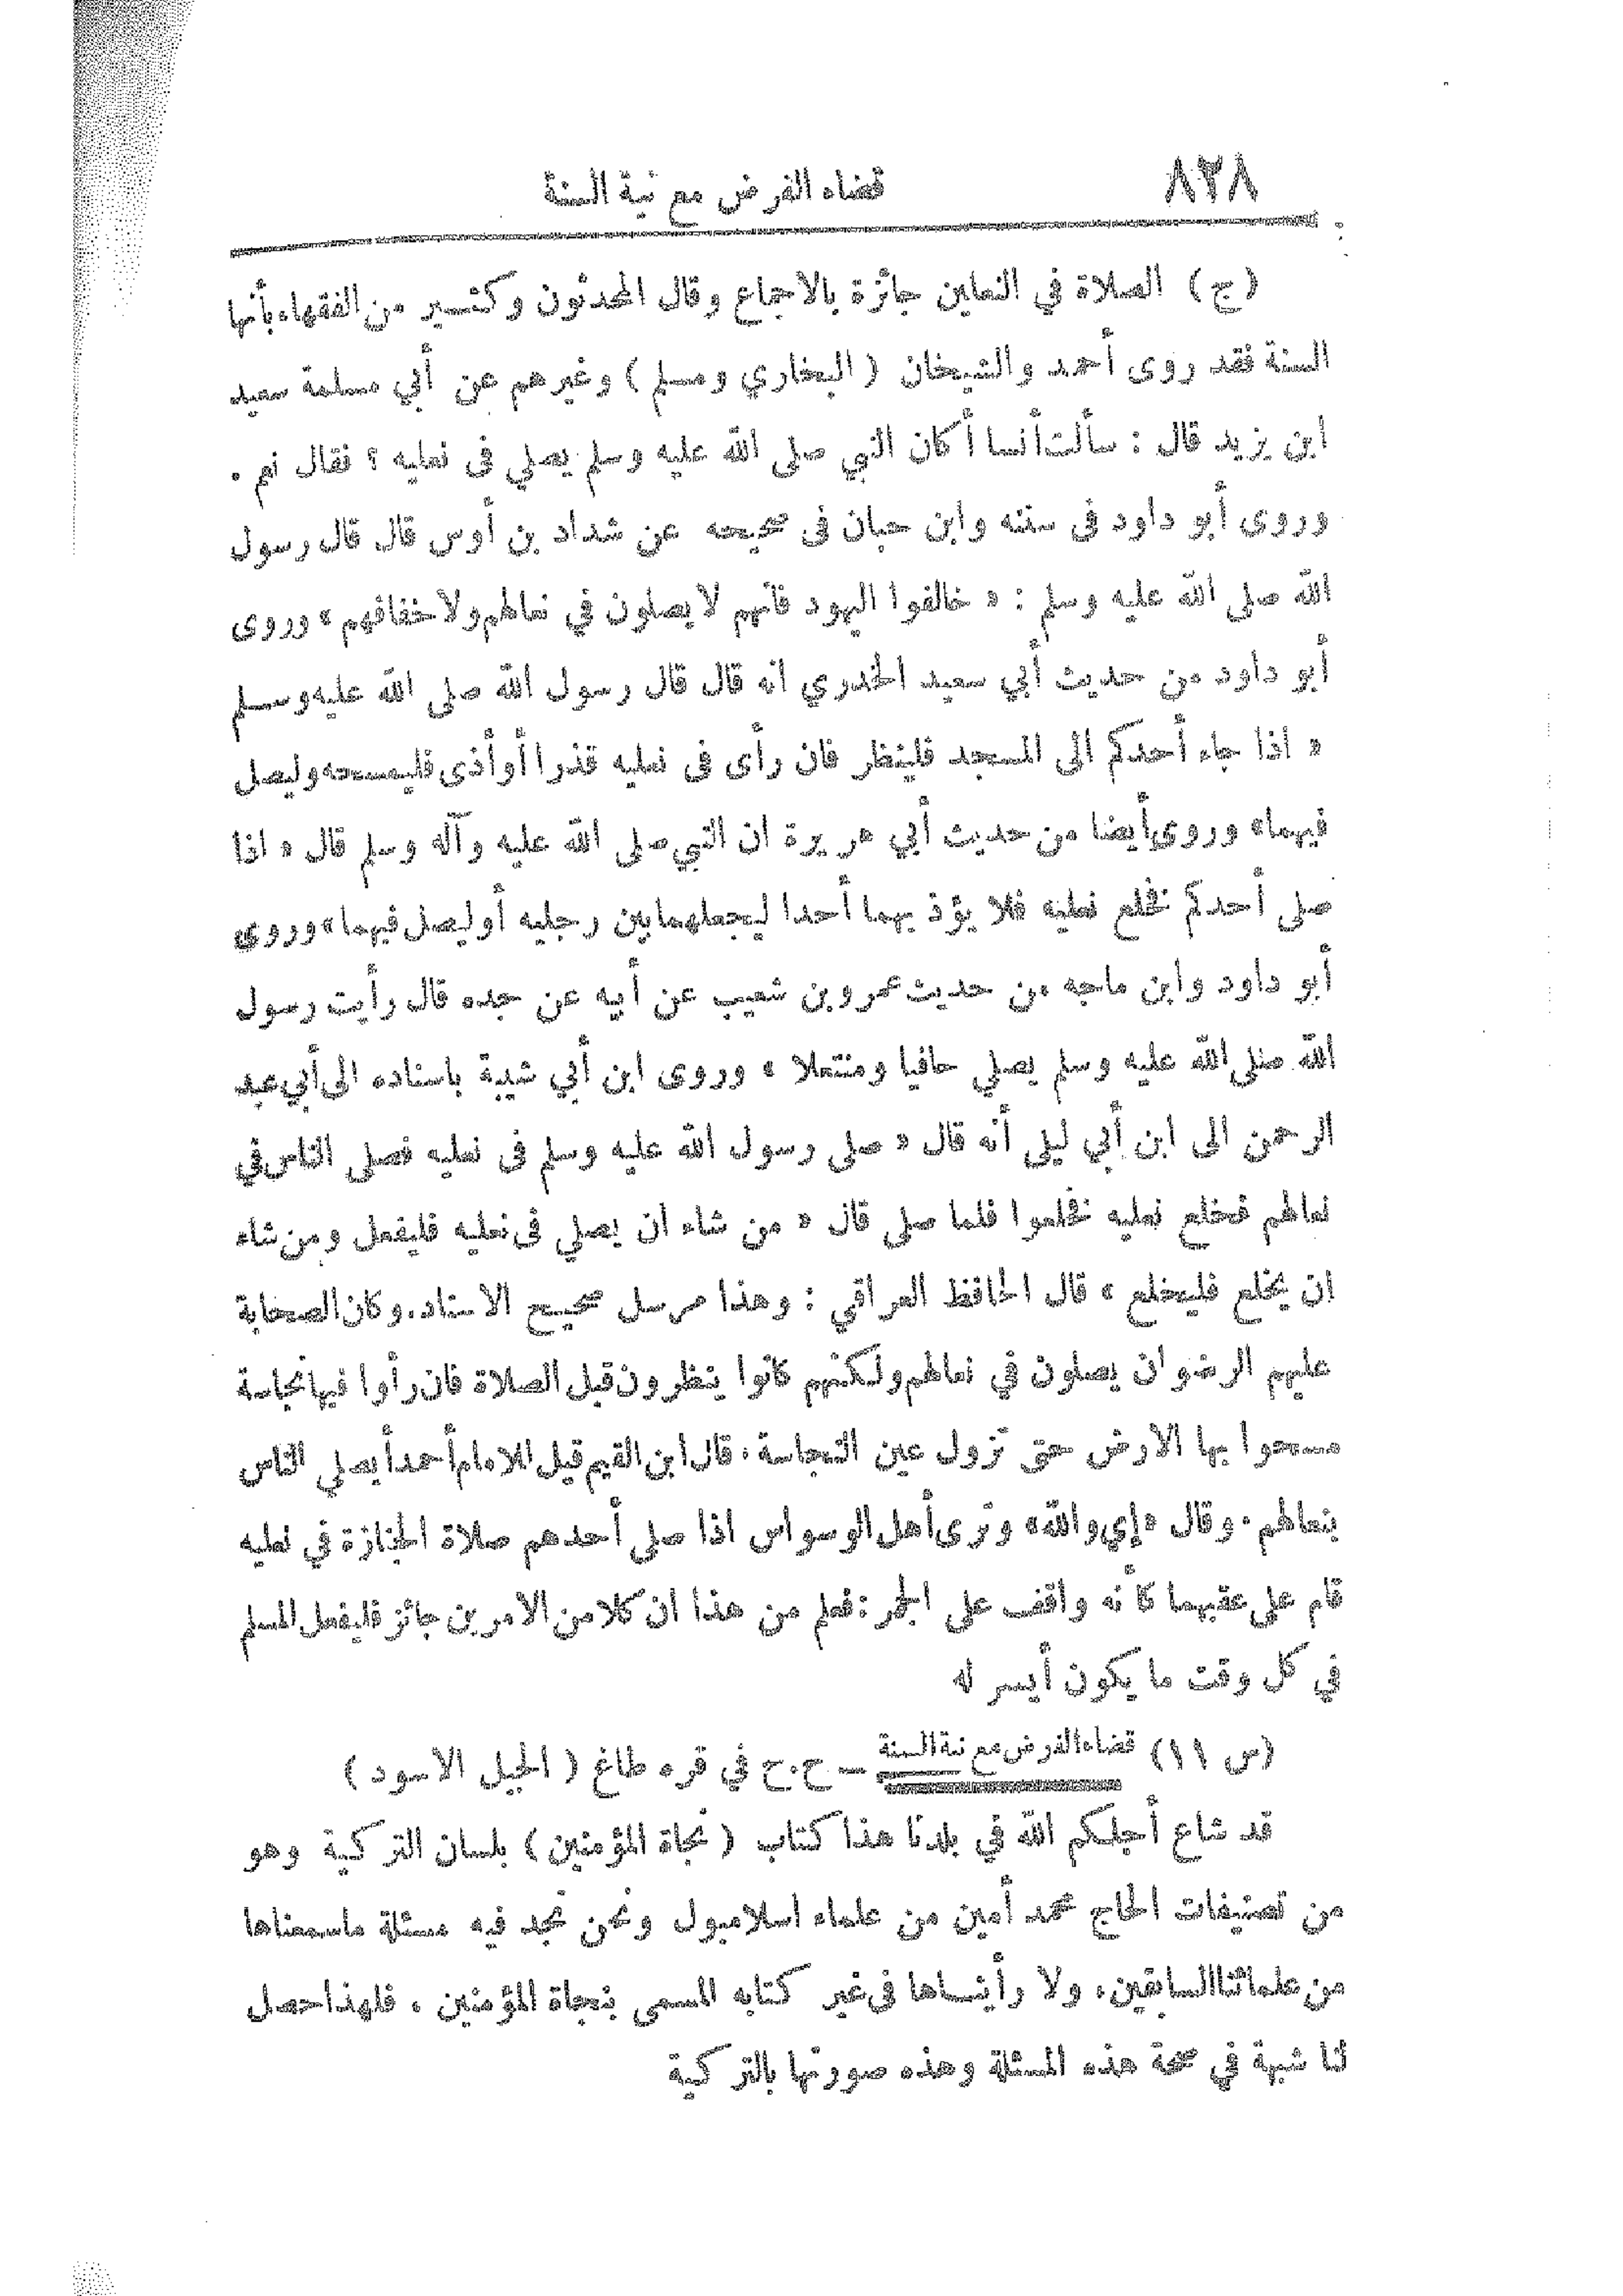 ٨٢٨
قضاء الفرض مع نية السنة
(ج) الصلاة في النعلين جائزة بالاجماع وقال المحدثون وكثير من الفقهاء بأنها
السنة فقد روى أحمد والشيخان ( البخاري ومسلم ) وغيرهم عن أبي مسلمة سعيد
ابن يزيد قال : سألت أنسا أ كان النبي صلى الله عليه وسلم يصلي في نعليه ؟ فقال نعم .
وروى أبو داود في سننه وابن حبان في صحيحه عن شداد بن أوس قال قال رسول
الله صلى الله عليه وسلم : « خالفوا اليهود فانهم لا يصلون في نعالهم ولا خفافهم » وروى
أبو داود من حديث أبي سعيد الخدري انه قال قال رسول الله صلى الله عليه وسلم
« اذا جاء أحدكم الى المسجد فلينظر فان رأى في نعليه قذرا أو أذى فليمسحه وليصل
فيهما » وروى أيضا من حديث أبي هريرة ان النبي صلى الله عليه وآله وسلم قال « اذا
صلى أحدكم فخلع نعليه فلا يؤذ بهما أحدا ليجعلهما بين رجليه أو ليصل فيهما » وروى
أبو داود وابن ماجه من حديث عمرو بن شعيب عن أبيه عن جده قال رأيت رسول
الله صلى الله عليه وسلم يصلي حافيا ومنتعلا » وروى ابن أبي شيبة باسناده الى أبي عبد
الرحمن الى ابن أبي ليلى أنه قال « صلى رسول الله عليه وسلم في نعليه فصلى الناس في
نعالهم فخلع نعليه فخلعوا فلما صلى قال « من شاء ان يصلي في نعليه فليفعل ومن شاء
ان يخلع فليخلع » قال الحافظ العراقي : وهذا مرسل صحيح الاسناد . وكان الصحابة
عليهم الرضوان يصلون في نعالهم ولكنهم كانوا ينظرون قبل الصلاة فان رأوا فيها نجاسة
مسحوا بها الارض حتى تزول عين النجاسة . قال ابن القيم قيل للامام أحمد أيصلي الناس
بنعالهم . وقال « إي والله » وترى أهل الوسواس اذا صلى أحدهم صلاة الجنازة في نعليه
قام على عقبهما كأنه واقف على الجمر : فعلم من هذا ان كلا من الامرين جائز فليفعل المسلم
في كل وقت ما يكون أيسر له
(س ١١) قضاء الفرض مع نية السنة – ح . ح في قره طاغ ( الجبل الاسود )
قد شاع أجلكم الله في بلدنا هذا كتاب ( نجاة المؤمنين ) بلسان التركية وهو
من تصنيفات الحاج محمد أمين من علماء اسلامبول ونحن نجد فيه مسئلة ما سمعناها
من علمائنا السابقين ، ولا رأيناها في غير كتابه المسمى بنجاة المؤمنين ، فلهذا حصل
لنا شبهة في صحة هذه المسئلة وهذه صورتها بالتركية